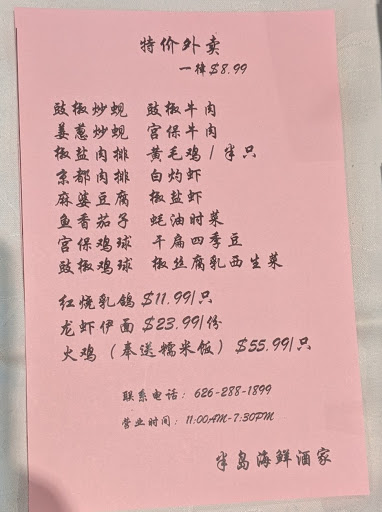 特价外卖
一律$8.99
豉椒炒蚬 豉椒牛肉
姜葱炒蚬 宫保牛肉
椒盐肉排 黄毛鸡/半只
京都肉排 白灼虾
麻婆豆腐 椒盐虾
鱼香茄子 蚝油时菜
宫保鸡球 干扁四季豆
豉椒鸡球 椒丝腐乳西生菜
红烧乳鸽 $11.99/只
龙虾伊面 $23.99/份
火鸡（奉送糯米饭）$55.99/只
联系电话: 626-288-1899
营业时间: 11:00AM-7:30PM
半岛海鲜酒家